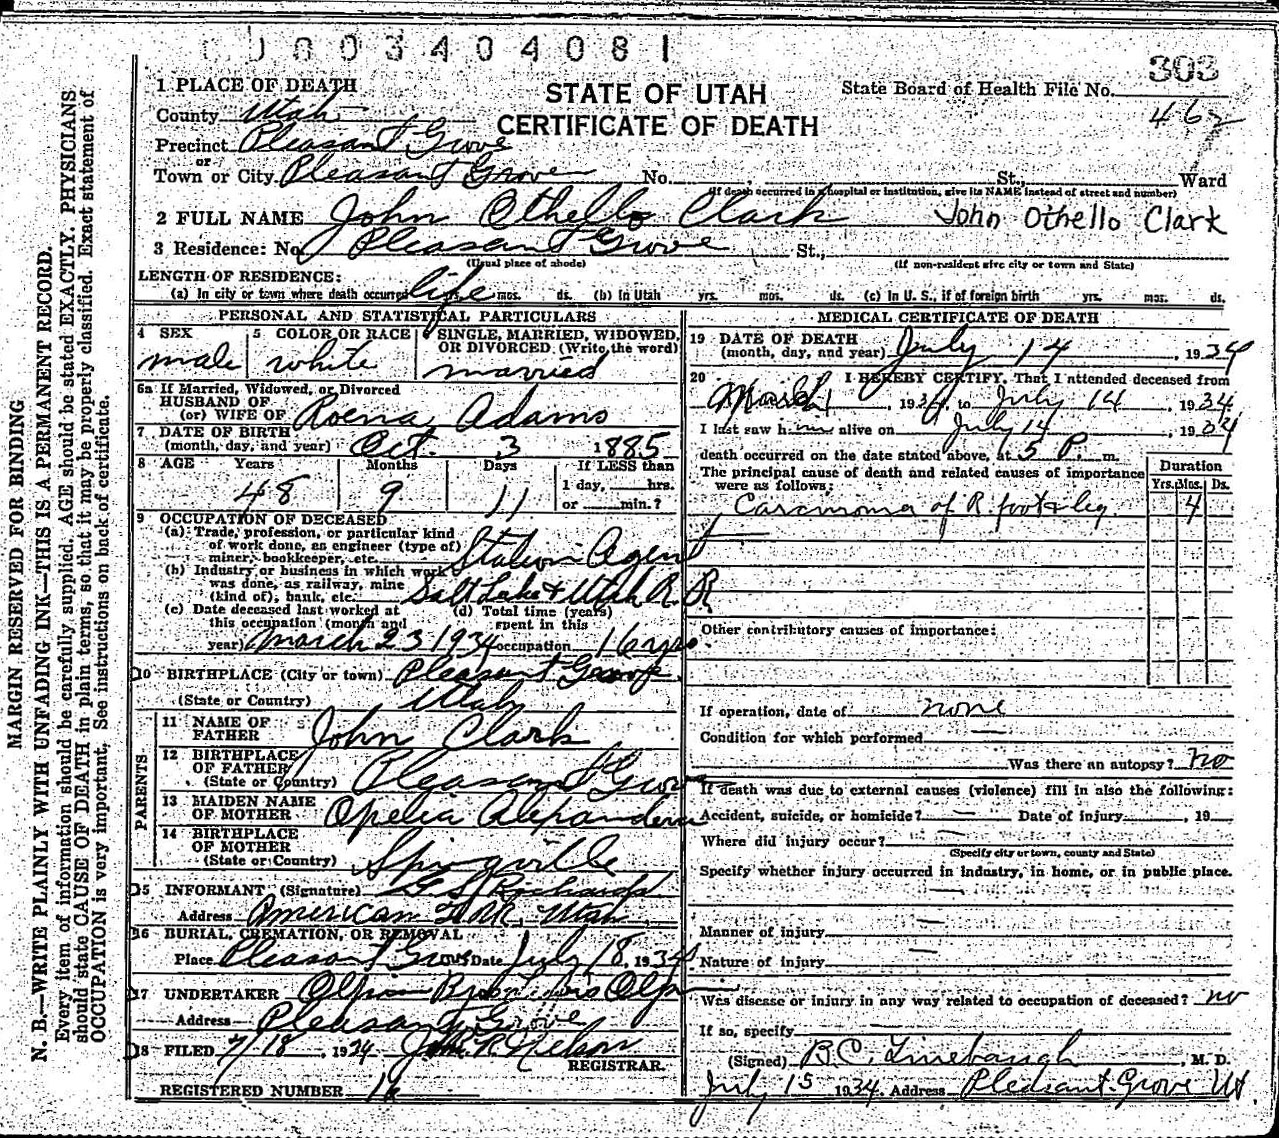 0003404081
303
1 PLACE OF DEATH
STATE OF UTAH
State Board of Health File No.
County Utah
CERTIFICATE OF DEATH
462
Precinct Pleasant Grove
or
Town or City Pleasant Grove No. St., Ward
(If death occurred in a hospital or institution, give its NAME instead of street and number)
2 FULL NAME John Othello Clark John Othello Clark
3 Residence: No. Pleasant Grove St.,
(Usual place of abode) (If non-resident give city or town and State)
LENGTH OF RESIDENCE:
(a) In city or town where death occurred life yrs. mos. ds. (b) In Utah yrs. mos. ds. (c) In U. S., if of foreign birth yrs. mos. ds.
PERSONAL AND STATISTICAL PARTICULARS
4 SEX 5 COLOR OR RACE 6 SINGLE, MARRIED, WIDOWED,
OR DIVORCED. (Write the word)
male white married
6a If Married, Widowed, or Divorced
HUSBAND OF
(or) WIFE OF Roena Adams
7 DATE OF BIRTH
(month, day, and year) Oct. 3 1885
8 AGE Years Months Days If LESS than
1 day, hrs.
48 9 11 or min.?
9 OCCUPATION OF DECEASED
(a) Trade, profession, or particular kind
of work done, as engineer (type of)
miner, bookkeeper, etc. Station Agent
(b) Industry or business in which work
was done, as railway, mine
(kind of), bank, etc. Salt Lake & Utah R.R.
(c) Date deceased last worked at (d) Total time (years)
this occupation (month and spent in this
year) March 23 1934 occupation 16 yrs.
10 BIRTHPLACE (City or town) Pleasant Grove
(State or Country) Utah
PARENTS
11 NAME OF
FATHER John Clark
12 BIRTHPLACE
OF FATHER Pleasant Grove
(State or Country)
13 MAIDEN NAME
OF MOTHER Opelia
14 BIRTHPLACE
OF MOTHER
(State or Country) Springville
15 INFORMANT (Signature) Richards
Address American Fork, Utah
16 BURIAL, CREMATION, OR REMOVAL
Place Pleasant Grove Date July 18, 1934
17 UNDERTAKER
Address Pleasant Grove
18 FILED 7/18, 1934 Nelson
REGISTRAR.
REGISTERED NUMBER
MEDICAL CERTIFICATE OF DEATH
19 DATE OF DEATH
(month, day, and year) July 14, 1934
20 I HEREBY CERTIFY, That I attended deceased from
March, 1934, to July 14, 1934
I last saw him alive on July 14, 1934
death occurred on the date stated above, at 5 P. m.
The principal cause of death and related causes of importance
were as follows:
Duration
Yrs. Mos. Ds.
Carcinoma of R. foot & leg 4
Other contributory causes of importance:
If operation, date of none
Condition for which performed
Was there an autopsy? no
If death was due to external causes (violence) fill in also the following:
Accident, suicide, or homicide? Date of injury, 19
Where did injury occur?
(Specify city or town, county and State)
Specify whether injury occurred in industry, in home, or in public place.
Manner of injury
Nature of injury
Was disease or injury in any way related to occupation of deceased? no
If so, specify
(Signed) B.C. Linebaugh, M. D.
July 15 1934 Address Pleasant Grove Ut
MARGIN RESERVED FOR BINDING
N. B.—WRITE PLAINLY WITH UNFADING INK—THIS IS A PERMANENT RECORD.
Every item of information should be carefully supplied. AGE should be stated EXACTLY. PHYSICIANS
should state CAUSE OF DEATH in plain terms, so that it may be properly classified. Exact statement of
OCCUPATION is very important. See instructions on back of certificate.